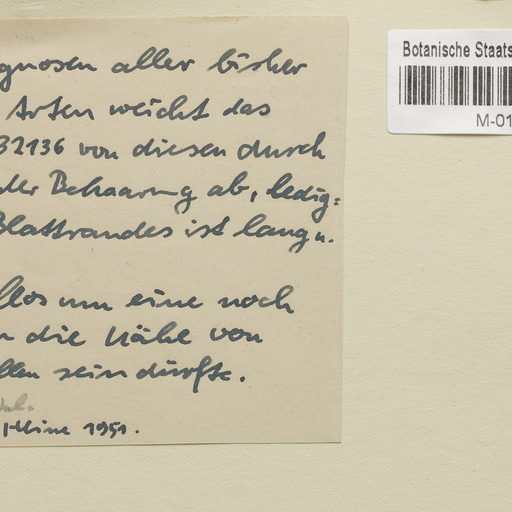 gnosen aller bisher
Arten weicht das
32136 von diesen durch
der Behaarung ab, ledig=
Blattrandes ist lang u.
llos um eine noch
n die Nähe von
llen sein dürfte.
1951.
Botanische Staats
M-01